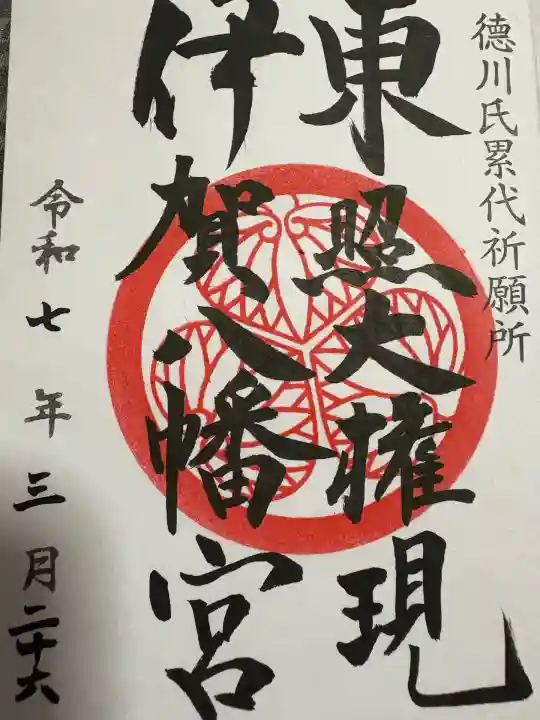 徳川氏累代祈願所
東照大権現
伊賀八幡宮
令和七年三月二十六